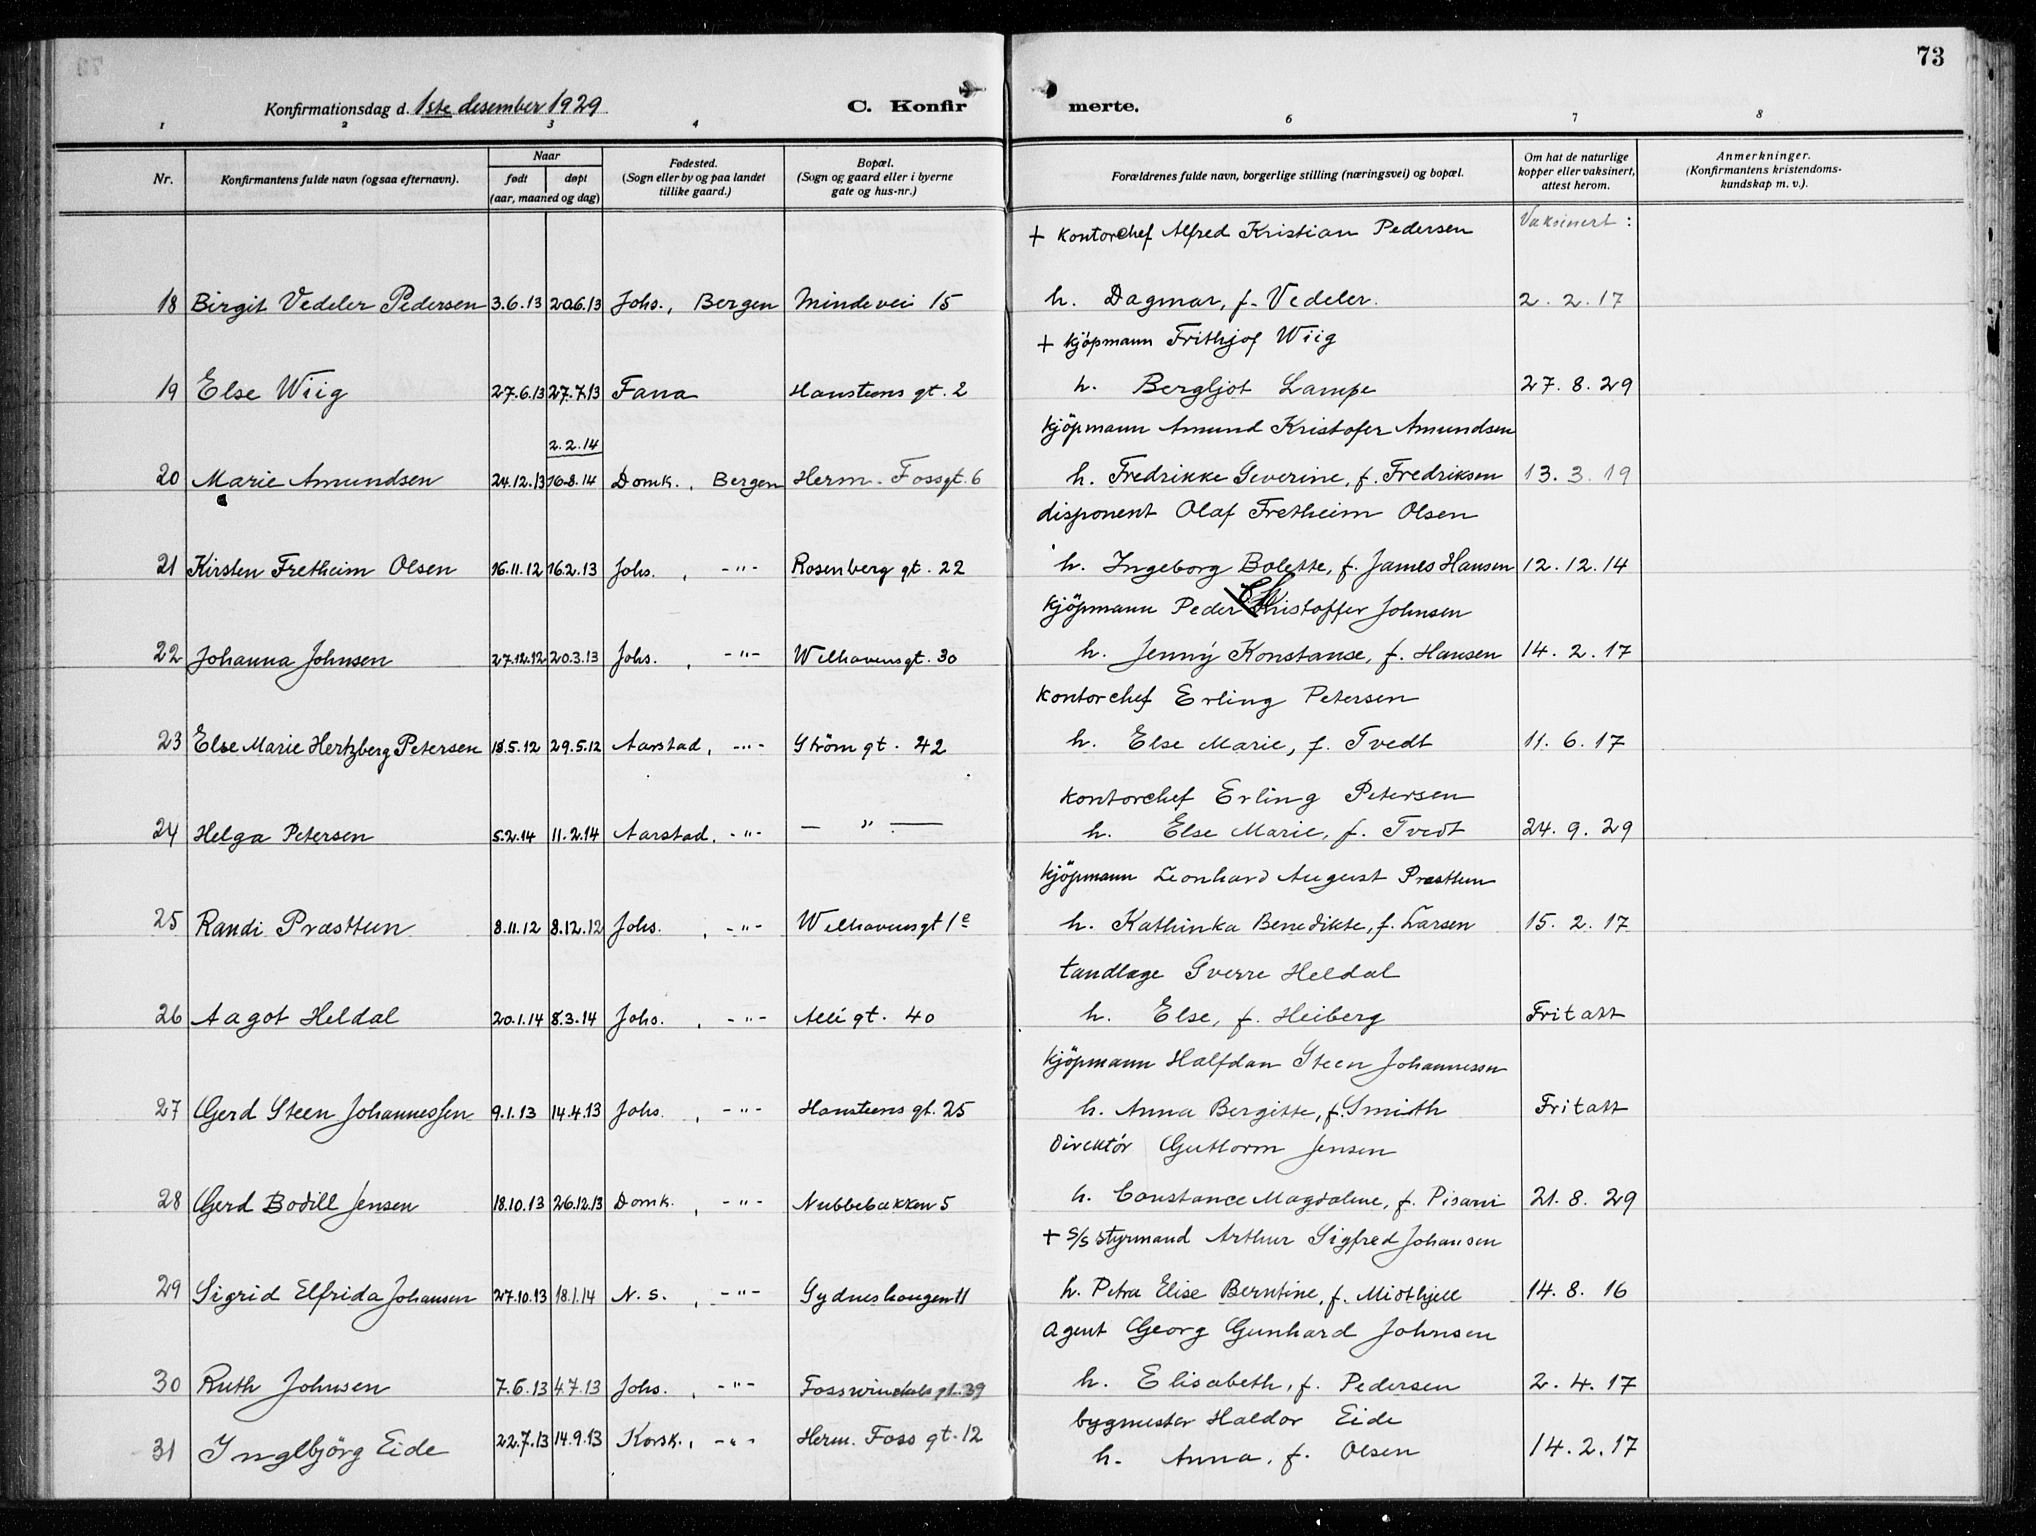 73
Konfirmationsdag d. 1ste desember 1929
C. Konfirmerte.
1 2 3 4 6 7 8
Nr.
Konfirmantens fulde navn (ogsaa efternavn).
Naar
født
døpt
(aar, maaned og dag)
Fødested.
(Sogn eller by og paa landet
tillike gaard.)
Bopæl.
(Sogn og gaard eller i byerne
gate og hus-nr.)
Forældrenes fulde navn, borgerlige stilling (næringsvei) og bopæl.
Om hat de naturlige
kopper eller vaksinert,
attest herom.
Anmerkninger.
(Konfirmantens kristendoms-
kundskap m. v.).
+ kontorchef Alfred Kristian Pedersen Vaksinert :
18 Birgit Vedeler Pedersen 3.6.13 20.6.13 Johs., Bergen Minde vei 15 h. Dagmar, f. Vedeler. 2. 2. 17
+ kjöpmann Frithjof Wiig
19 Else Wiig 27.6.13 27.7.13 Fana Hansteens gt. 2 h. Bergljot Lampe 27. 8. 29
kjöpmann Amund Kristofer Amundsen
2.2.14
20 Marie Amundsen 24.12.13 16.8.14 Domk., Bergen Herm. Foss gt. 6 h. Fredrikke Severine, f. Fredriksen 13. 3. 19
disponent Olaf Fretheim Olsen
21 Kirsten Fretheim Olsen 16.11.12 16.2.13 Johs. , -"- Rosenberg gt. 22 h. Ingeborg Bolette, f. James Hansen 12. 12. 14
kjöpmann Peder Christoffer Johnsen
22 Johanna Johnsen 27.12.12 20.3.13 Johs. , -"- Welhavensgt. 30 h. Jenny Konstanse, f. Hansen 14. 2. 17
kontorchef Erling Petersen
23 Else Marie Hertzberg Petersen 18.5.12 29.5.12 Aarstad, -"- Ström gt. 42 h. Else Marie, f. Tvedt 11. 6. 17
kontorchef Erling Petersen
24 Helga Petersen 5.2.14 11.2.14 Aarstad, -"- — " — h. Else Marie, f. Tvedt 24. 9. 29
kjöpmann Leonhard August Præsttun
25 Randi Præsttun 8.11.12 8.12.12 Johs. , -"- Welhavensgt 1e h. Kathinka Benedikte, f. Larsen 15. 2. 17
tandlæge Sverre Heldal
26 Aagot Heldal 20.1.14 8.3.14 Johs. , -"- Allé gt. 40 h. Else, f. Heiberg Fritatt
kjöpmann Halfdan Steen Johannessen
27 Gerd Steen Johannessen 9.1.13 14.4.13 Johs. , -"- Hansteens gt. 25 h. Anna Bergitte, f. Smith Fritatt
Direktör Guttorm Jensen
28 Gerd Bodill Jensen 18.10.13 26.12.13 Domk. , -"- Nubbebakken 5 h. Constance Magdalene, f. Pisani 21. 8. 29
+ s/s styrmand Arthur Sigfred Johansen
29 Sigrid Elfrida Johansen 27.10.13 18.1.14 N. s. , -"- Sydneshaugen 11 h. Petra Elise Berntine, f. Midthjell 14. 8. 16
agent Georg Gunhard Johnsen
30 Ruth Johnsen 7.6.13 4.7.13 Johs. , -"- Fosswinckels gt. 39 h. Elisabeth, f. Pedersen 2. 4. 17
bygmester Haldor Eide
31 Ingebjörg Eide 22.7.13 14.9.13 Korsk., -"- Herm. Foss gt. 12 h. Anna, f. Olsen 14. 2. 17